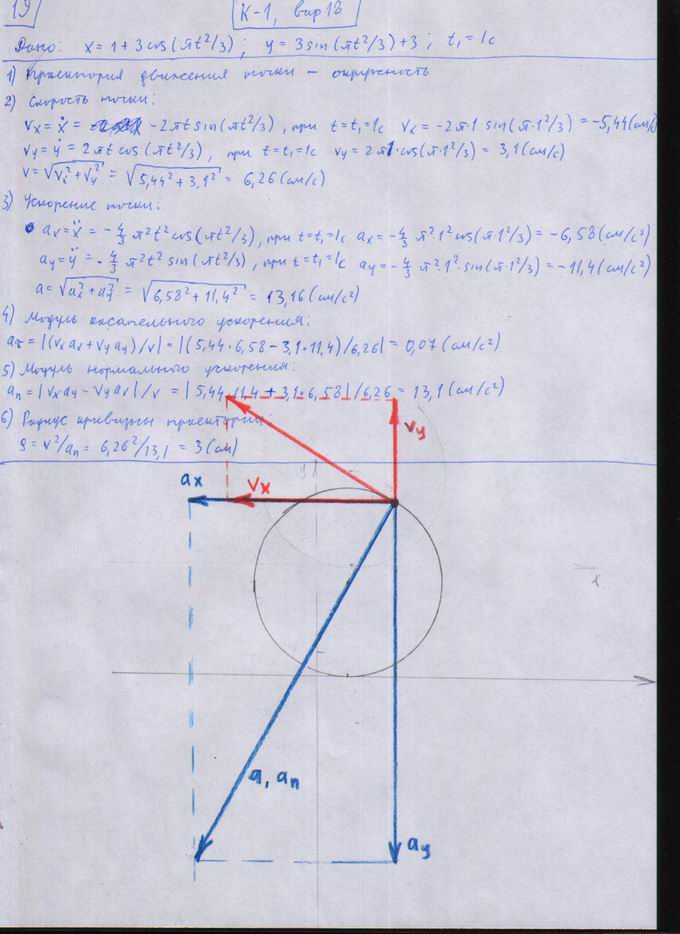 19
К-1, вар 18
Дано: x = 1 + 3 cos(πt²/3); y = 3 sin(πt²/3) + 3; t₁ = 1с
1) Траектория движения точки – окружность
2) Скорость точки:
Vx = ẋ = -2πt sin(πt²/3), при t = t₁ = 1с Vx = -2π·1 sin(π·1²/3) = -5,44 (см/с)
Vy = ẏ = 2πt cos(πt²/3), при t = t₁ = 1с Vy = 2π1·cos(π·1²/3) = 3,1 (см/с)
V = √(Vx² + Vy²) = √(5,44² + 3,1²) = 6,26 (см/с)
3) Ускорение точки:
ax = ẍ = -4/3 π²t² cos(πt²/3), при t = t₁ = 1с ax = -4/3 π²1² cos(π·1²/3) = -6,58 (см/с²)
ay = ÿ = -4/3 π²t² sin(πt²/3), при t = t₁ = 1с ay = -4/3 π²·1²·sin(π·1²/3) = -11,4 (см/с²)
a = √(ax² + ay²) = √(6,58² + 11,4²) = 13,16 (см/с²)
4) Модуль касательного ускорения:
aτ = |(Vx ax + Vy ay)/V| = |(5,44·6,58 - 3,1·11,4)/6,26| = 0,07 (см/с²)
5) Модуль нормального ускорения:
an = |Vx ay - Vy ax|/V = |5,44·11,4 + 3,1·6,58|/6,26 = 13,1 (см/с²)
6) Радиус кривизны траектории:
ρ = V²/an = 6,26²/13,1 = 3 (см)
Vy
y
ax
Vx
x
a, an
ay